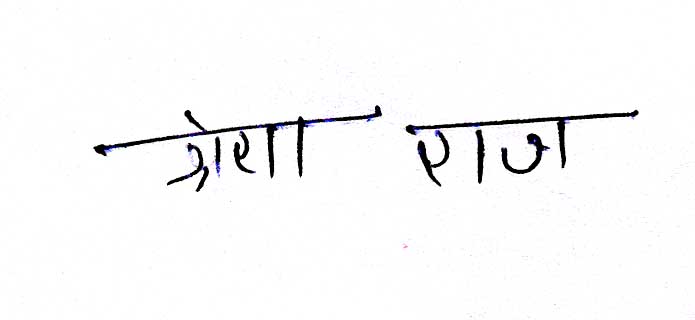 श्रेया राज